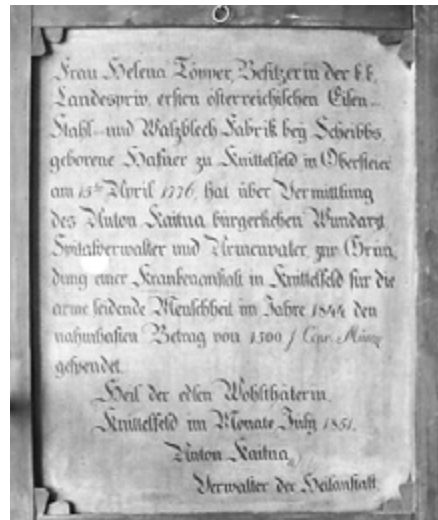 Frau Helena Töpper, Besitzerin der k.k.
Landespriv. ersten österreichischen Eisen-
Stahl- und Walzblech Fabrik bey Scheibbs,
geborene Hafner zu Knittelfeld in Obersteier
am 15ten April 1776, hat über Vermittlung
des Anton Kaitna bürgerlichen Wundarzt,
Spitalverwalter und Armenvater, zur Grün-
dung einer Krankenanstalt in Knittelfeld für die
arme leidende Menschheit im Jahre 1844 den
nahmhaften Betrag von 1500 f Conv. Münze
gespendet.
Heil der edlen Wohlthäterin.
Knittelfeld im Monate July 1851.
Anton Kaitna
Verwalter der Heilanstalt.